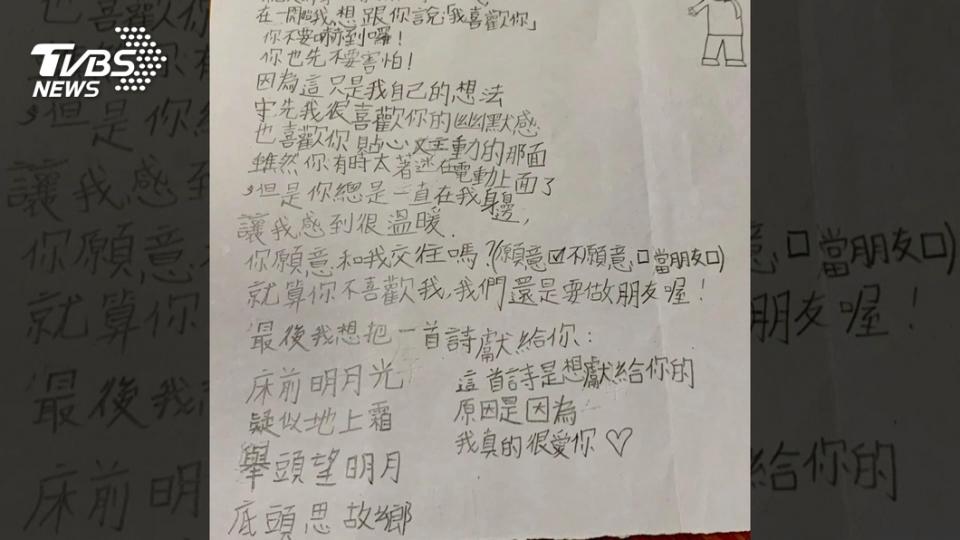 TVBS
NEWS
在一開始我想跟你說「我喜歡你」
你不要嚇到囉!
你也先不要害怕!
因為這只是我自己的想法
我很喜歡你的幽默感
也喜歡你貼心又主動的那面
雖然你有時太著迷在電動上面了
,但是你總是一直在我身邊,
讓我感到很溫暖.
你願意和我交往嗎?(願意☑不願意,□當朋友□)
就算你不喜歡我,我們還是要做朋友喔!
最後我想把一首詩獻給你:
床前明月光
疑似地上霜
舉頭望明月
底頭思故鄉
這首詩是想獻給你的
原因是因為
我真的很愛你♡